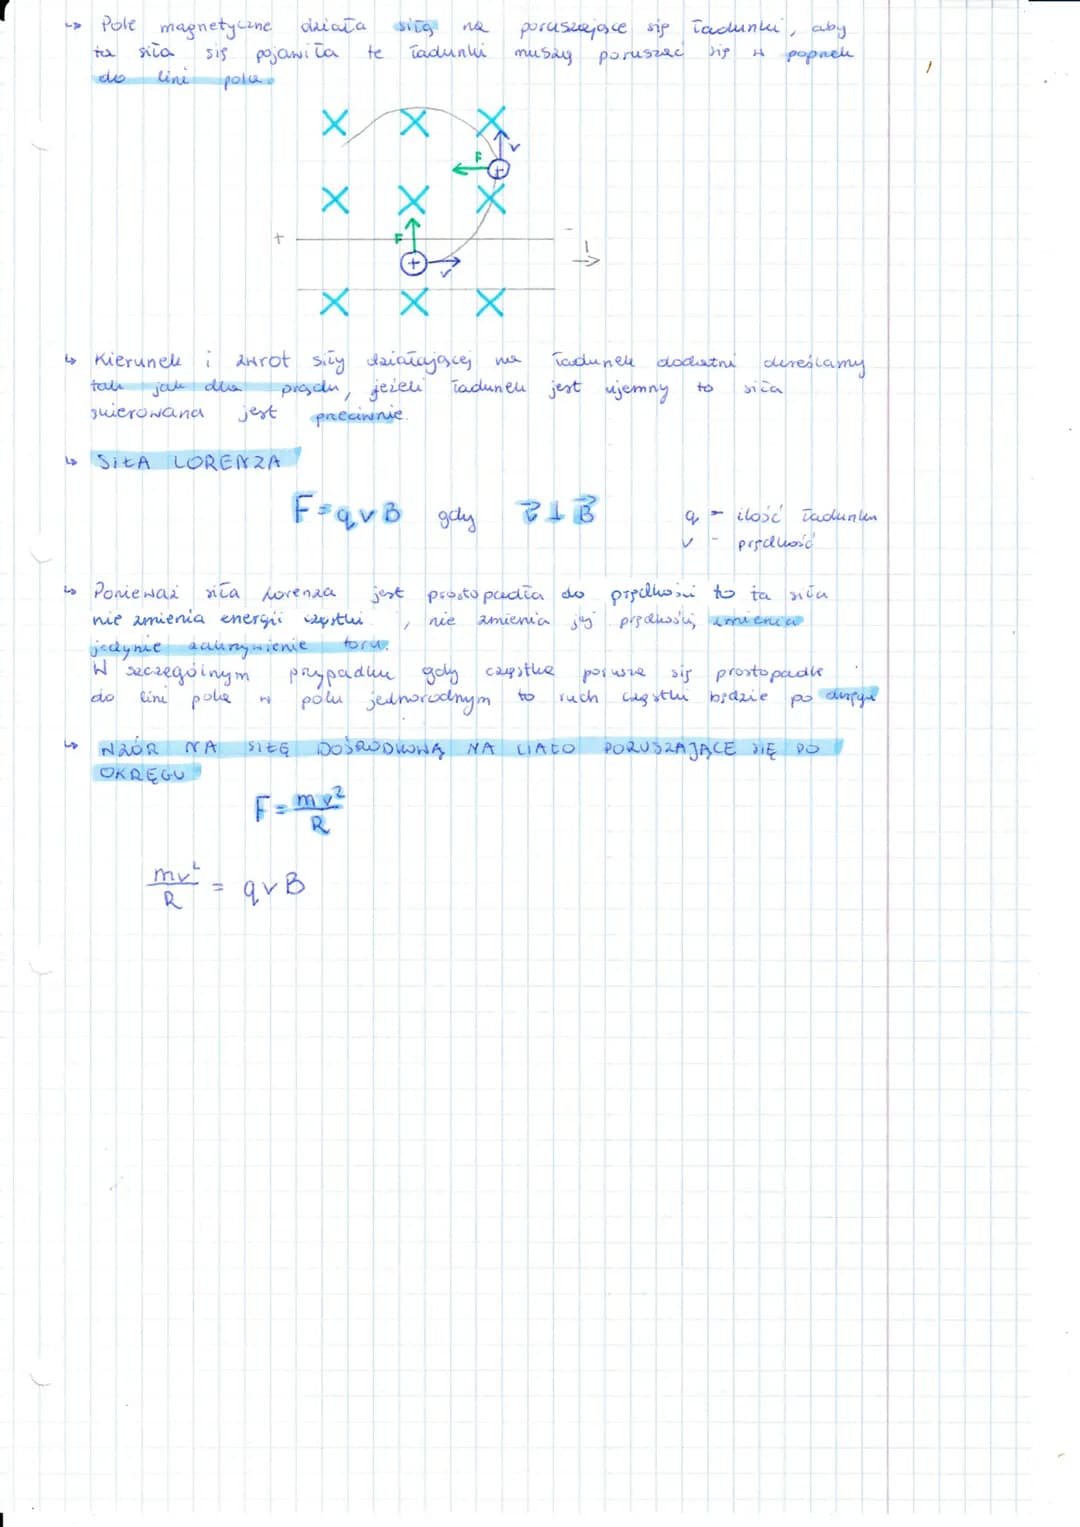 ↳ Pole magnetyczne działa siłą na poruszające się ładunki, aby
ta siła się pojawiła te ładunki muszą poruszać się w poprzek
do lini pola.
F v
+ F v - I
↳ Kierunek i zwrot siły działającej na ładunek dodatni określamy
tak jak dla prądu, jeżeli ładunek jest ujemny to siła
skierowana jest przeciwnie.
↳ SIŁA LORENZA
F = qvB gdy v⃗ ⊥ B⃗
q - ilość ładunku
v - prędkość
↳ Ponieważ siła Lorenza jest prostopadła do prędkości to ta siła
nie zmienia energii cząstki, nie zmienia jej prędkości, zmienia
jedynie zakrzywienie toru.
W szczególnym przypadku gdy cząstka porusza się prostopadle
do lini pola w polu jednorodnym to ruch cząstki będzie po okręgu
↳ WZÓR NA SIŁĘ DOŚRODKOWĄ NA CIAŁO PORUSZAJĄCE SIĘ PO
OKRĘGU
F = mv²/R
mv²/R = qvB